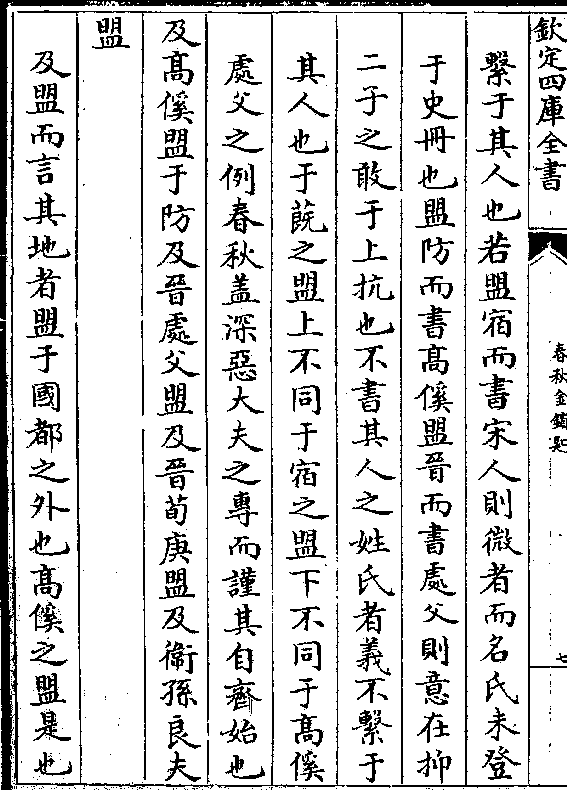 欽定四庫全書
春秋金鎖匙
七
繫于其人也若盟宿而書宋人則微者而名氏未登
于史冊也盟防而書髙傒盟晉而書處父則意在抑
二子之敢于上抗也不書其人之姓氏者義不繫于
其人也于蔇之盟上不同于宿之盟下不同于髙傒
處父之例春秋盖深惡大夫之專而謹其自齊始也
及髙傒盟于防及晉處父盟及晉荀庚盟及衞孫良夫
盟
及盟而言其地者盟于國都之外也髙傒之盟是也